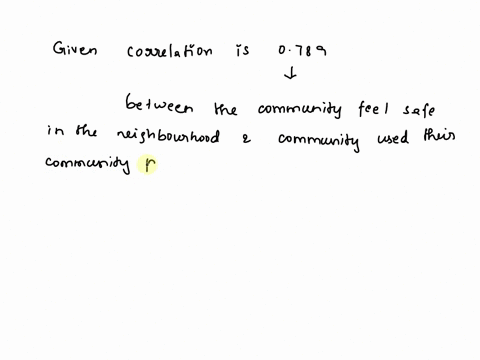 Given correlation is 0.789
↓
between the community feel safe
in the neighbourhood & community used their
community p